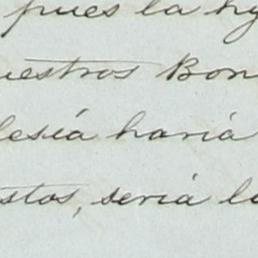 pues la hy
uestros Bon
lesia haria
stos, seria la